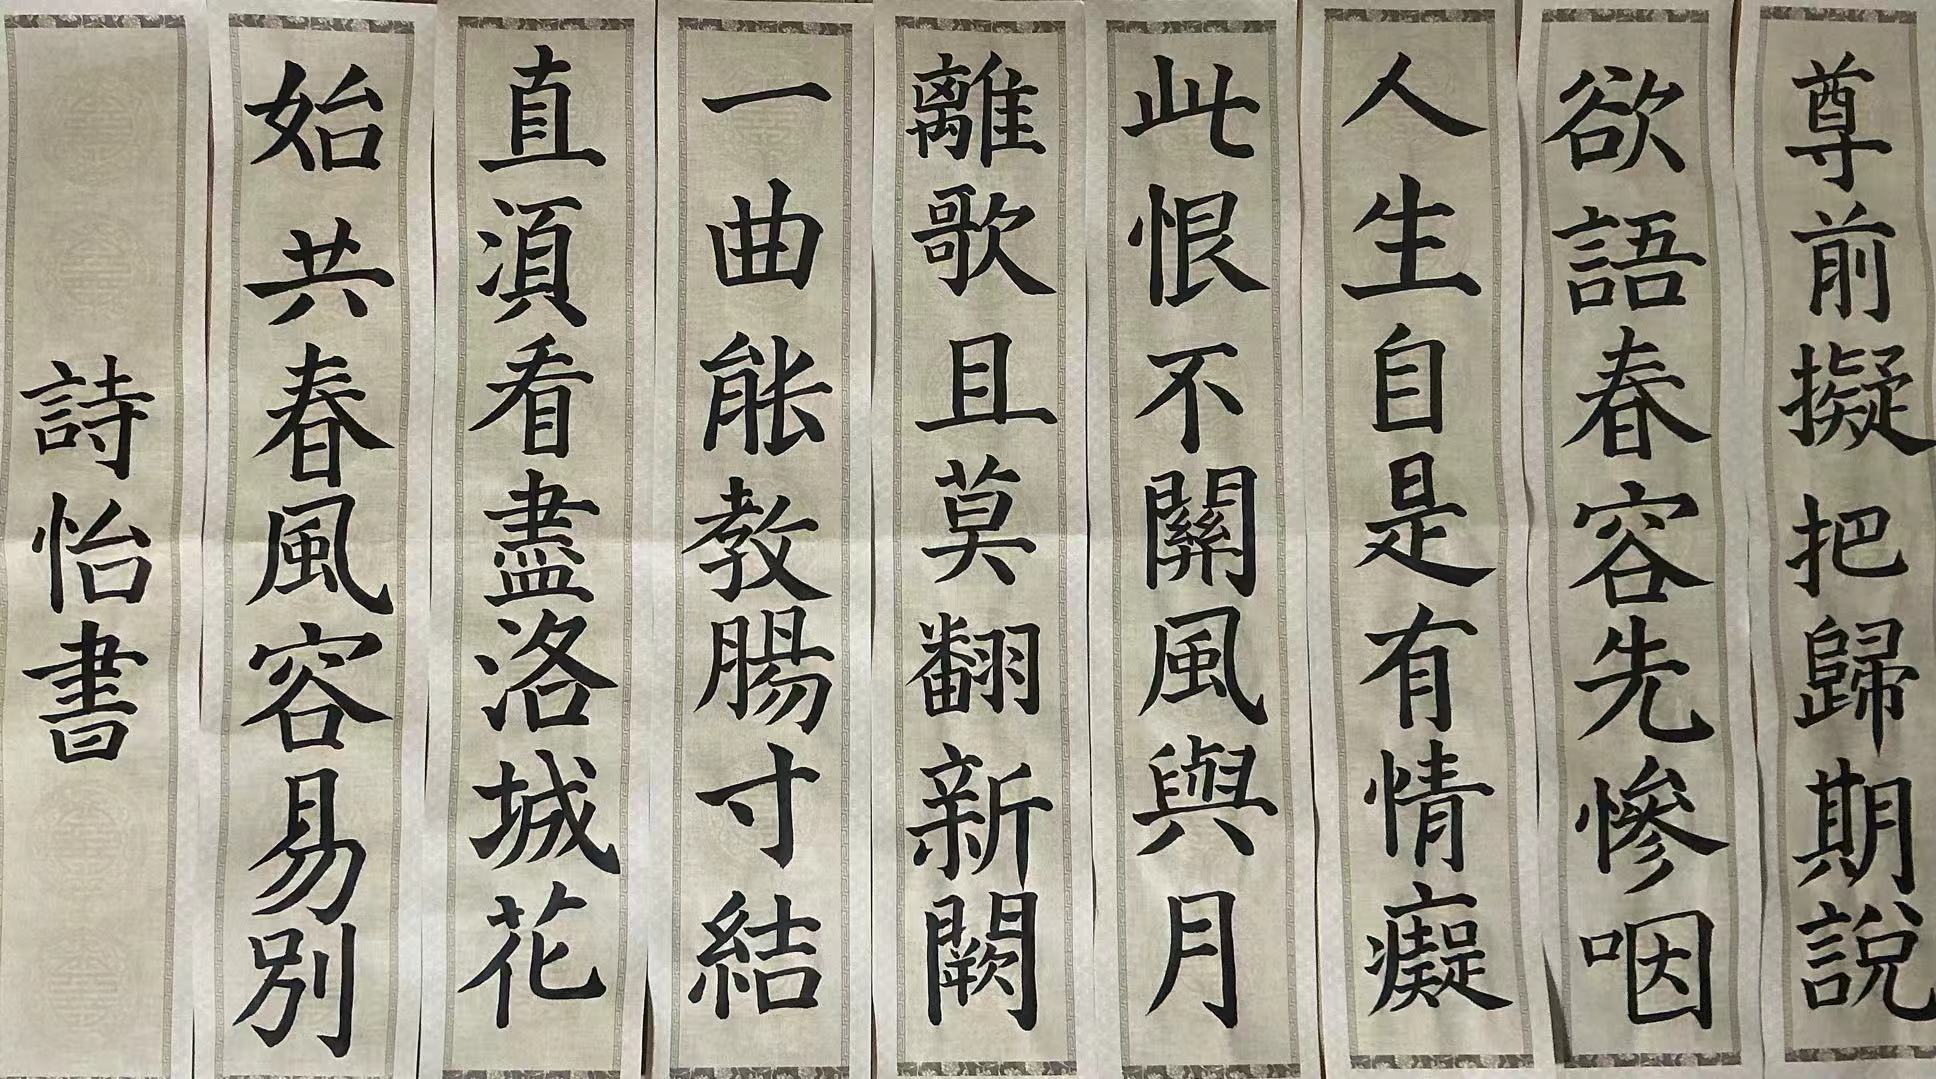 尊前擬把歸期說
欲語春容先慘咽
人生自是有情癡
此恨不關風與月
離歌且莫翻新闋
一曲能教腸寸結
直須看盡洛城花
始共春風容易別
詩怡書